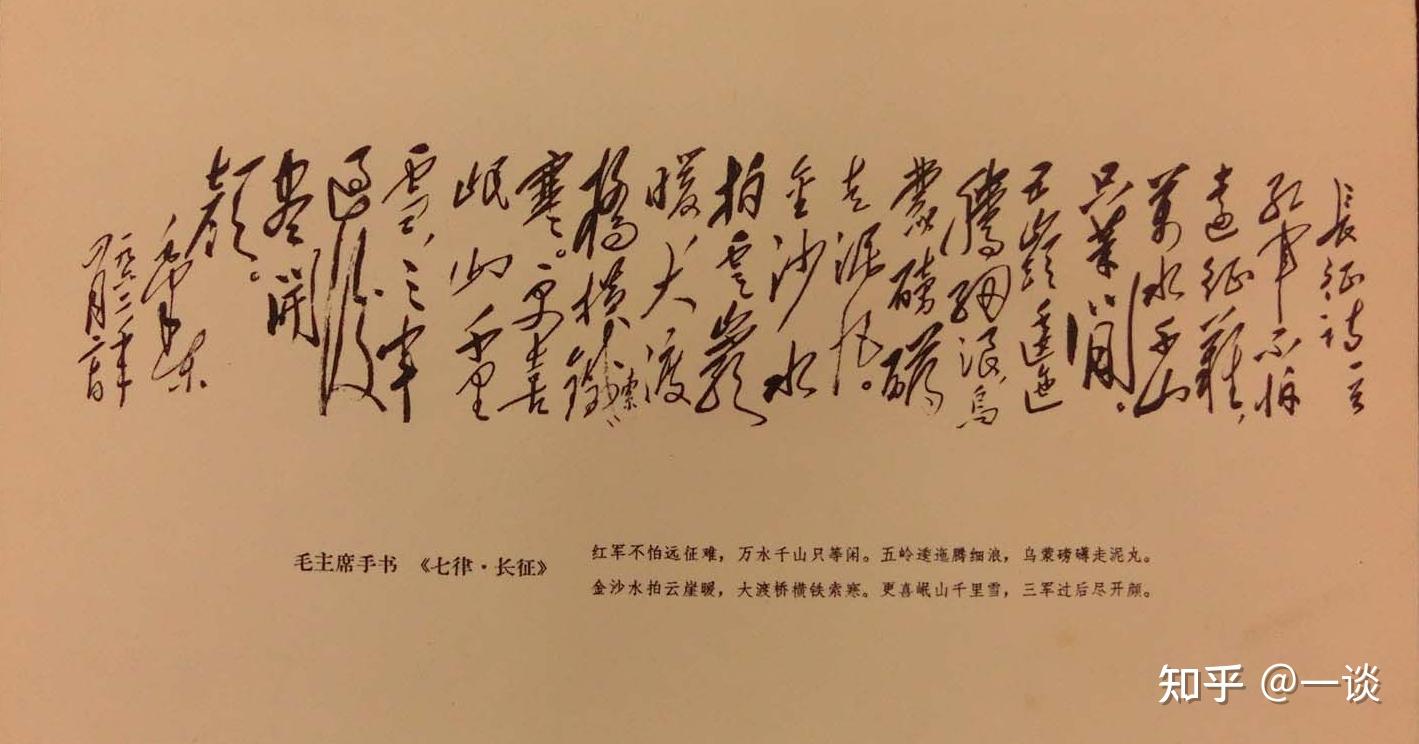 長征诗一首
红軍不怕
遠征難,
萬水千山
只等闲。
五嶺逶迤
腾细浪,乌
蒙磅礴
走泥丸。
金沙水
拍雲崖
暖大渡
橋横鐵索
寒。更喜
岷山千里
雪,三軍
過後
盡開
顏。
毛澤東
一九六二年
四月廿日
毛主席手书 《七律·长征》
红军不怕远征难,万水千山只等闲。五岭逶迤腾细浪,乌蒙磅礴走泥丸。
金沙水拍云崖暖,大渡桥横铁索寒。更喜岷山千里雪,三军过后尽开颜。
知乎 @一谈